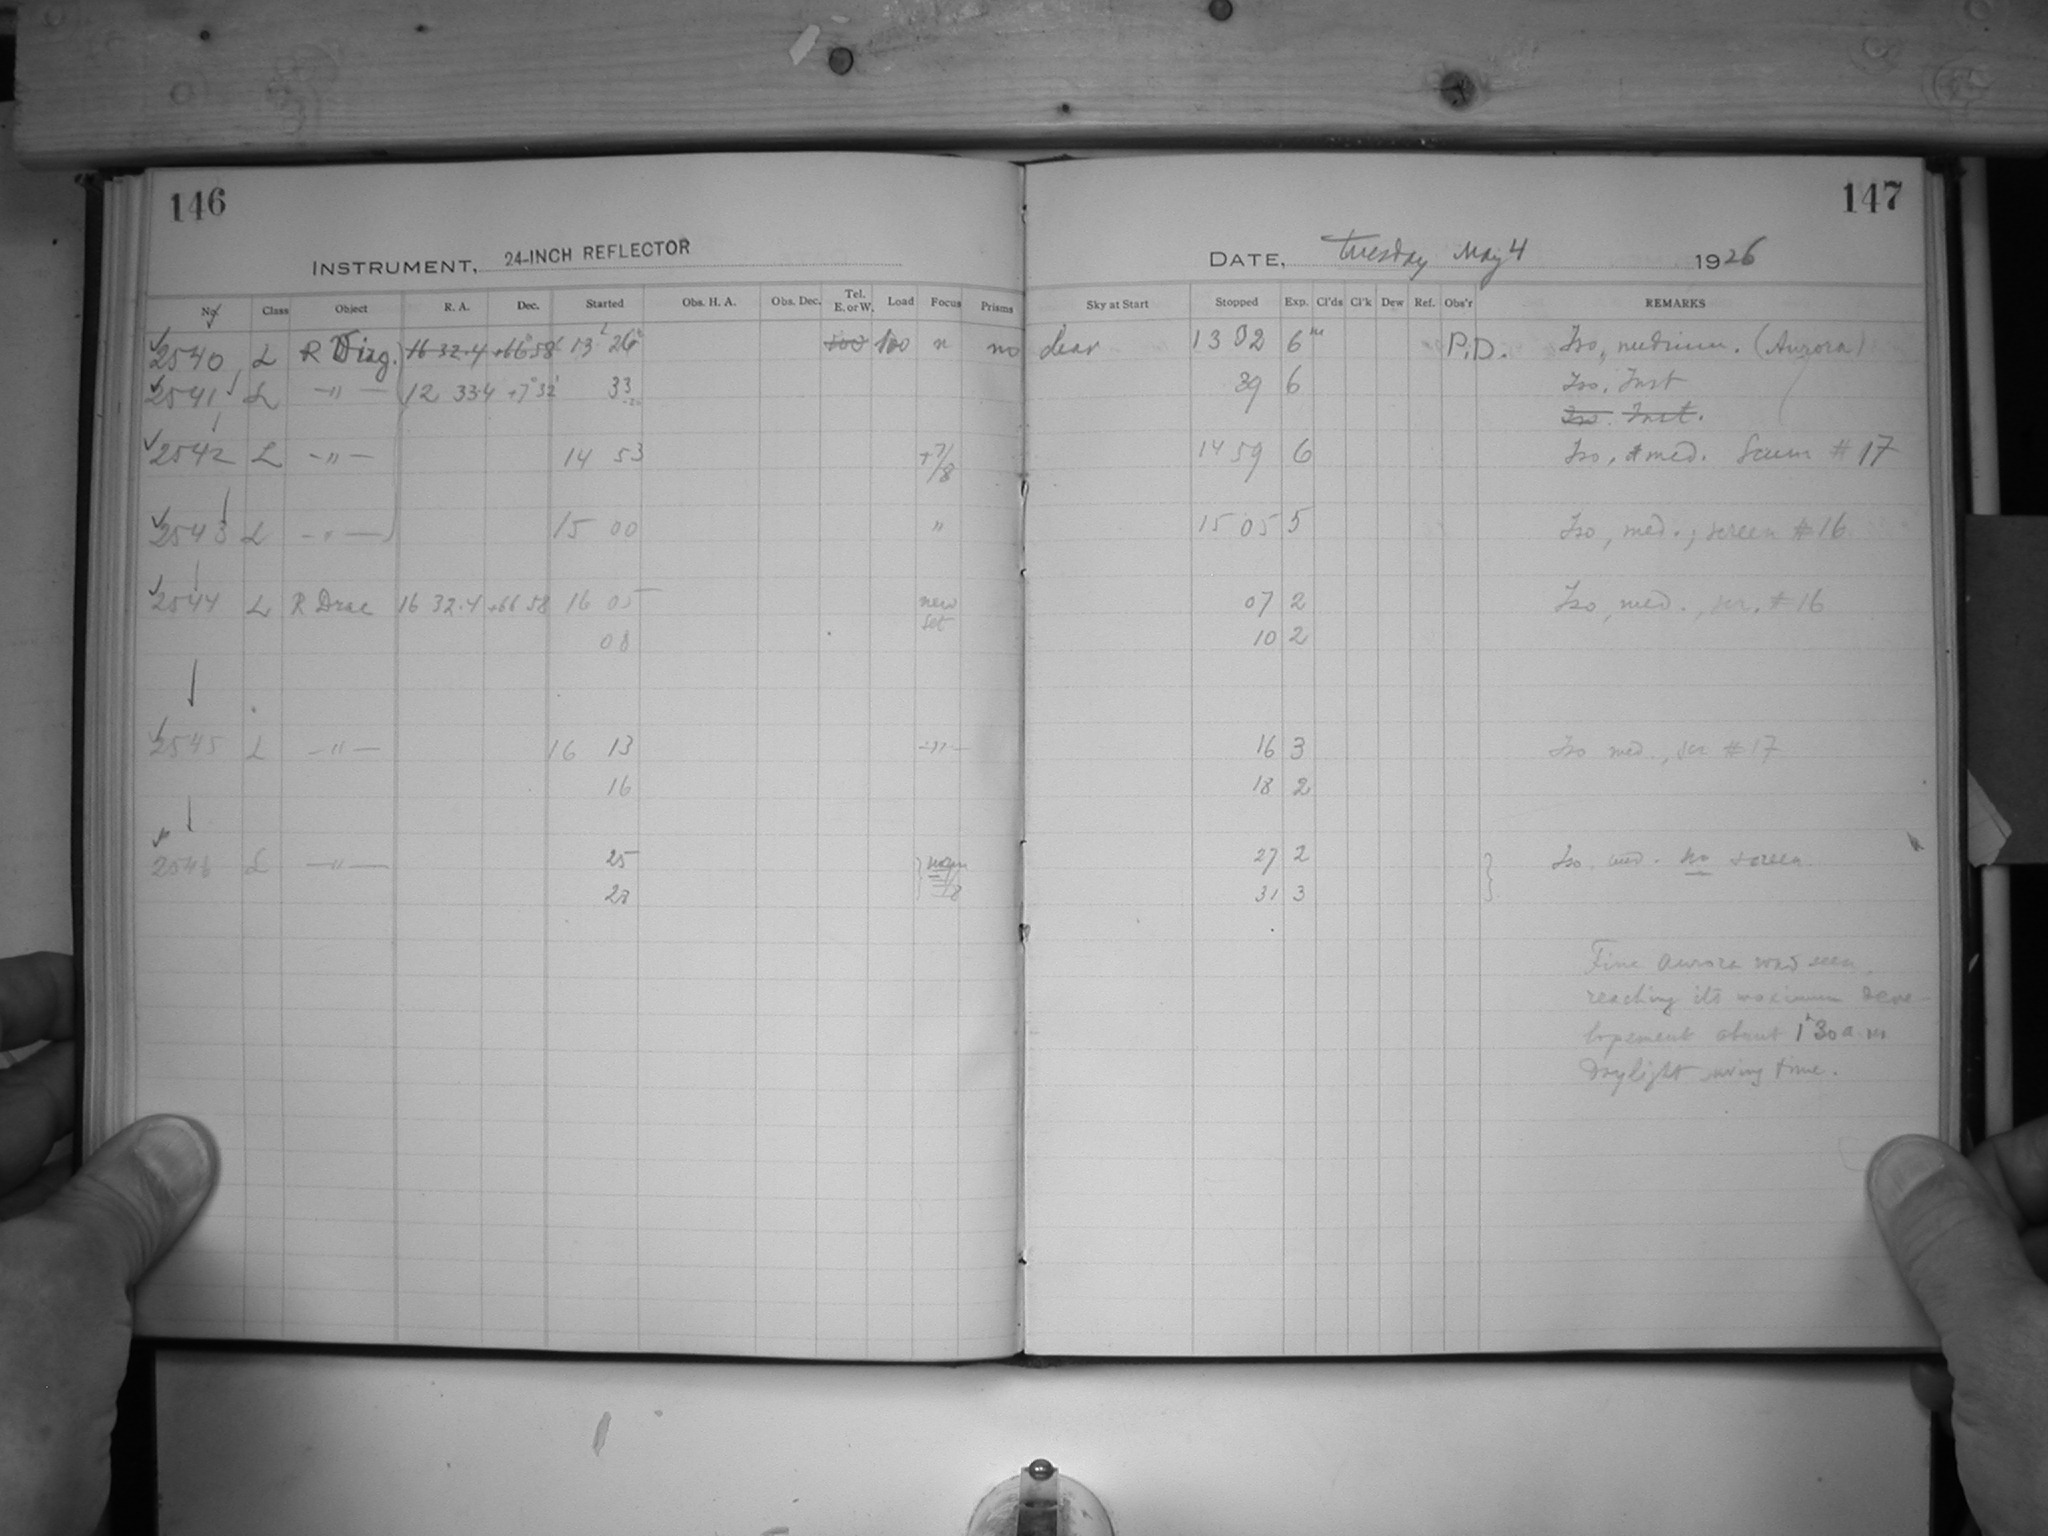 146
INSTRUMENT, 24-INCH REFLECTOR
No. Class Object R. A. Dec. Started Obs. H. A. Obs. Dec. Tel. E. or W. Load Focus Prisms
2540 L R Virg. 16 32.4 +66° 58' 13 26 100 100 n no
2541 L —〃— 12 33.4 +7° 32' 33
2542 L —〃— 14 53 +7/8
2543 L —〃— 15 00 〃
2544 L R Drac 16 32.4 +66 58 16 05 new set
08
2545 L —〃— 16 13 —〃—
16
2546 L —〃— 25
28
147
DATE, Tuesday May 4 1926
Sky at Start Stopped Exp. Cl'ds Cl'k Dew Ref. Obs'r REMARKS
clear 13 32 6m P.D. Iso, medium. (Aurora)
39 6 Iso, Inst
Iso. Inst.
14 59 6 Iso, med. #17
15 05 5 Iso, med., screen #16
07 2 Iso, med., scr. #16
10 2
16 3 Iso med., scr #17
18 2
27 2 Iso. med. no screen
31 3
Fine aurora was seen,
reaching its maximum deve-
lopement about 1h 30 a.m
Daylight saving time.